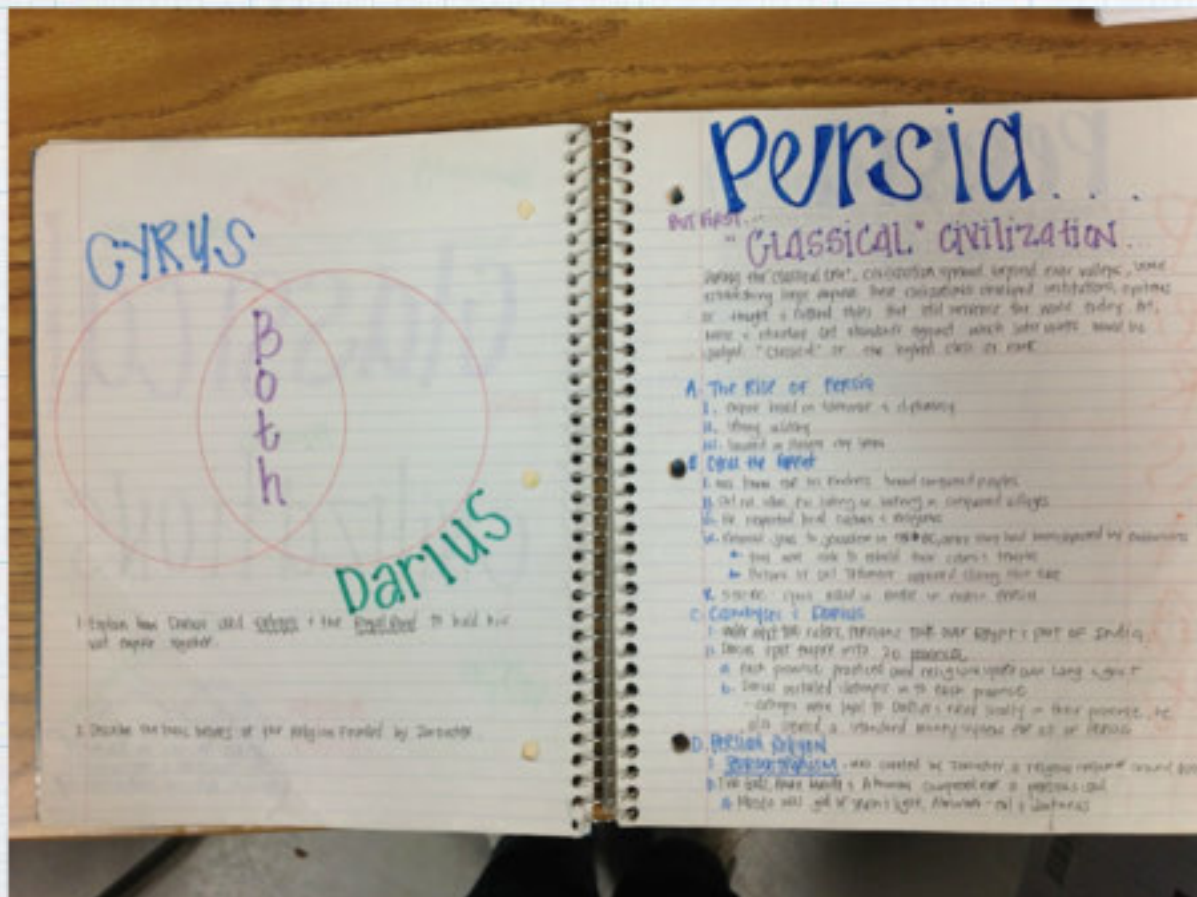 CYRUS
Both
Darius
1. Explain how Darius used satraps & the Royal Road to hold his
vast empire together.
2. Describe the basic beliefs of the religion founded by Zoroaster.
Persia...
BUT FIRST...
"Classical" Civilization...
civilization spread beyond river valleys,
establishing large empires these civilizations developed institutions, systems
of thought & that still influence the world today. Art,
set standards against which later works would be
judged. "Classical" or the highest class or rank
A. The Rise of Persia
I. empire based on tolerance & diplomacy
II. strong military
III. located in
B. Cyrus the Great
I. was known for his kindness toward conquered peoples
II. Did not allow his looting or burning in conquered villages
III. He respected local customs & religions
allowed Jews to Jerusalem in
They were able to rebuild their
C. Cambyses & Darius
I. under next two rulers, Persians took over Egypt & part of India.
II. Darius split empire into 20 provinces
a. each province practiced own religion, spoke own lang. &
b. Darius installed satraps in to each province
- satraps were loyal to Darius & ruled locally in their province. He
also a standard money system for all of Persia
D. Persian Religion
I. Zoroastrianism - was created by Zoroaster, a religious
II. Two gods, Ahura Mazda & Ahriman for a persons soul
Mazda was god of light, Ahriman - evil & darkness